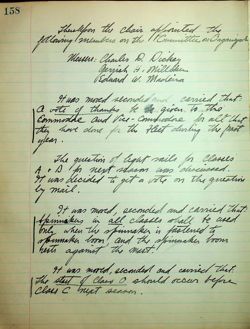 158
Thereupon the chair appointed the
following members on the Committee on
Messrs. Charles D. Dickey
H.
Edward W. Madeira
It was moved seconded and carried that
a vote of thanks be given to the
Commodore and Vice-Commodore for all that
they have done for the fleet during the past
year.
The question of light sails for Classes
A + D for next season was discussed.
It was decided to get a vote on the question
by mail.
It was moved, seconded and carried that
spinnakers in all classes shall be used
only when the spinnaker is fastened to
spinnaker boom, and the spinnaker boom
rests against the mast.
It was moved, seconded and carried that
the start of Class O should occur before
Class C next season.